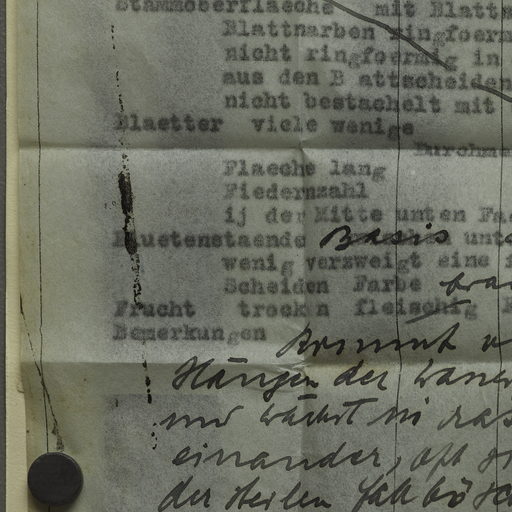 Stammoberflaeche mit Blatt
Blattnarben ringfoerm
nicht ringfoermig in
aus den B attscheiden
nicht bestachelt mit
Blaetter viele wenige
Durchm
Flaeche lang
Fiedernzahl
ij der Mitte unten Fa
Bluetenstaende Basis unt
wenig verzweigt eine
Scheiden Farbe bra
Frucht trocken fleischig
Bemerkungen
kommt
Hängen der
und wächst in das
einander, oft
der steilen